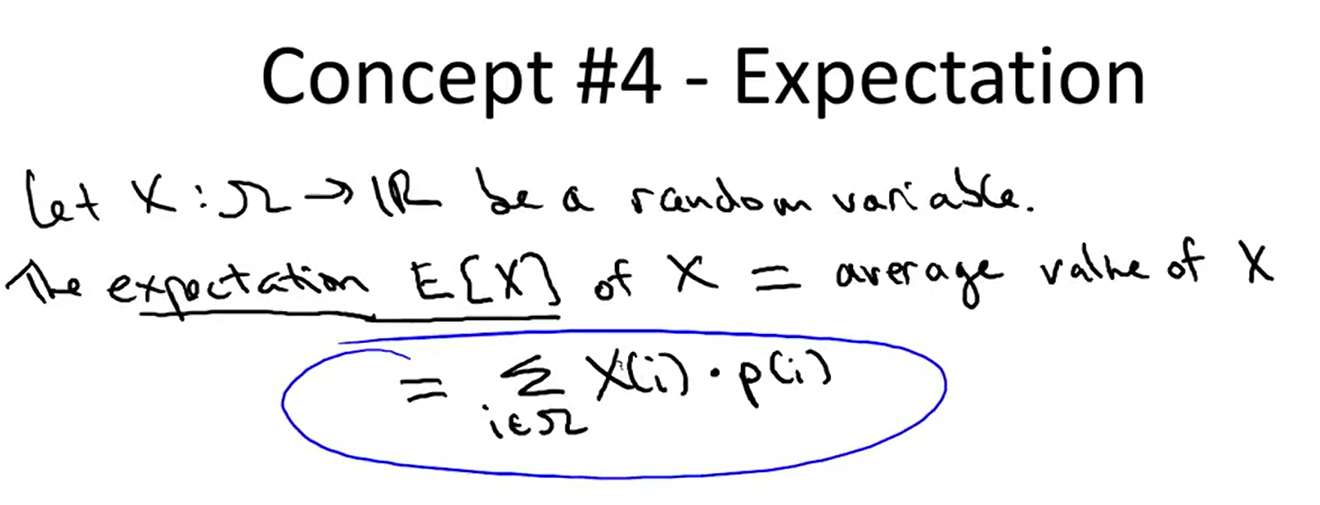 Concept #4 - Expectation
Let X : Ω → ℝ be a random variable.
The expectation E[X] of X = average value of X
= Σ X(i) · p(i)
i∈Ω